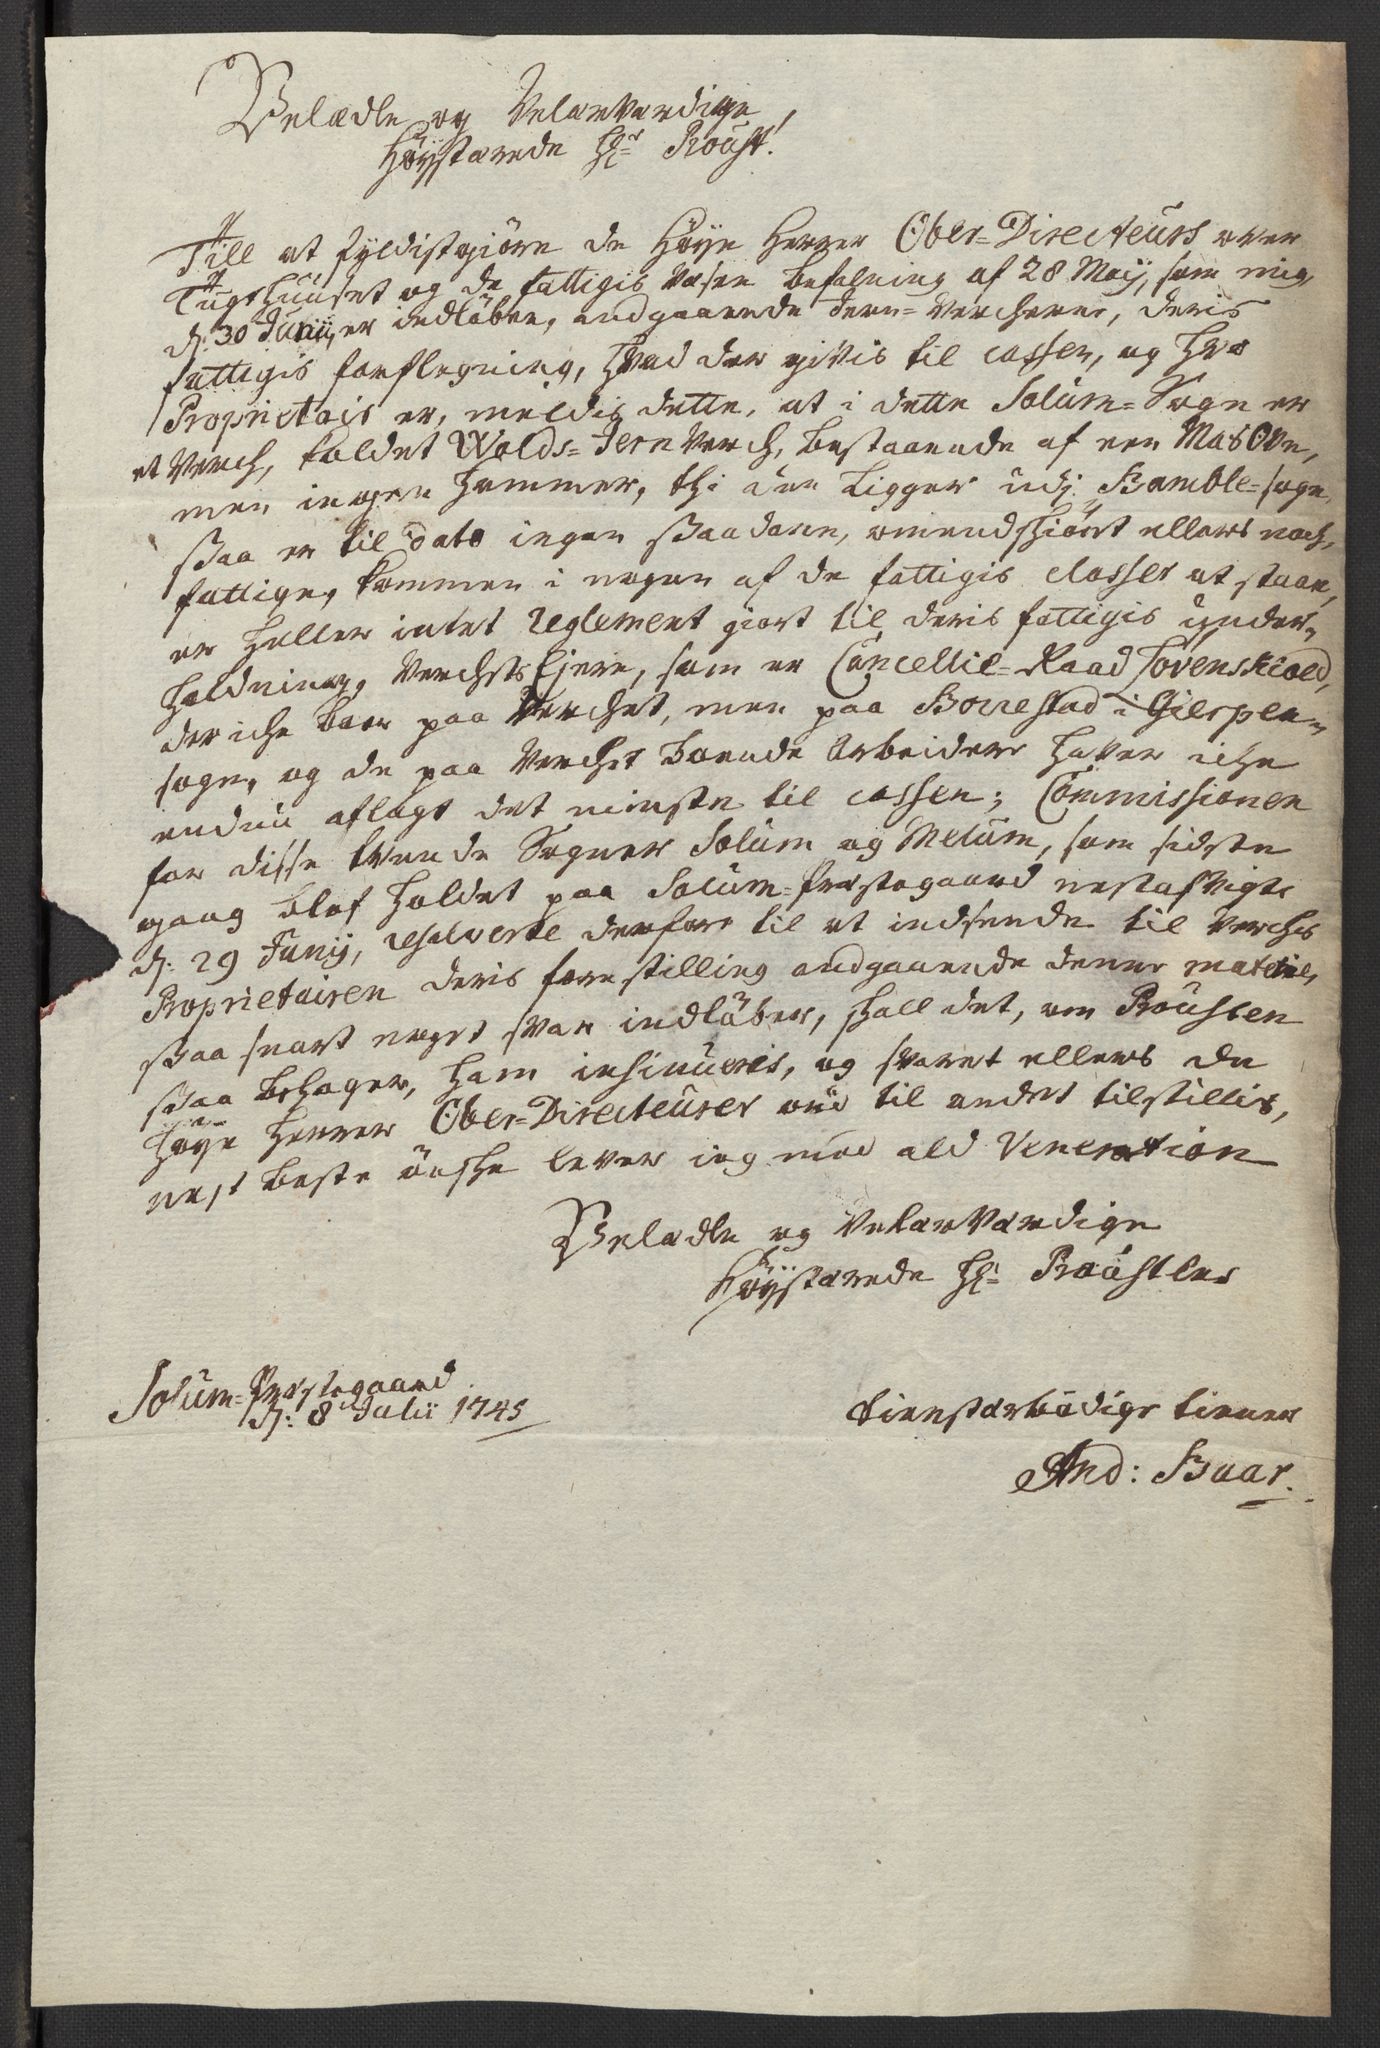 Velædle og Velærværdige,
Høystærede Hr Proust!
Till at fyldistgiøre de Høye Herrer Ober=Directeurs over
Tugthuuset og de fattigis væsen befalning af 28 Maij, som mig
d: 30 Junij er indløben, andgaaende Jern=Vercherne, deris
fattigis forflegning, hvad der givis til cassen, og hvo
Proprietair er, meldis dette, at i dette Solum=Sogn er
et Verch, kaldet Wolds=JernVerch, bestaaende af een MasOvn,
men ingen Hammer, thi den Ligger udj Bamble=sogn,
saa er til dato ingen saadann, omendskiønt ellers noch,
fattige, kommen i nogen af de fattigis classer at staae,
er heller intet Reglement giort til deris fattigis under=
holdning, Verchets Ejere, som er Cancellie=Raad Lövenskiold,
der iche boer paa Verchet, men paa Borrestad i Gierpen=
sogn, og de paa Verchet boende Arbeidere haver iche
endnu aflagt det minste til cassen; Commissionen
for disse tvende Sogner Solum og Melum, som sidste
gang blef holdet paa Solum=Præstegaard nestafvigte
d: 29 Junij, resolverte derfore til at indsende til Verchets
Proprietairen deris forestilling andgaaende denne materie,
saa snart noget svar indløber, skall det, om Prousten
saa behager, ham insinueris, og svaret ellers de
Høye Herrer Ober=Directeurer til andet tilstillis,
nest beste ønske lever jeg med ald Veneration
Velædle og Velærværdige
Høystærede Hr Proustes
Solum=Præstegaard
d: 8 Julii 1745
tienstærbødigste tiener
And: Baar.